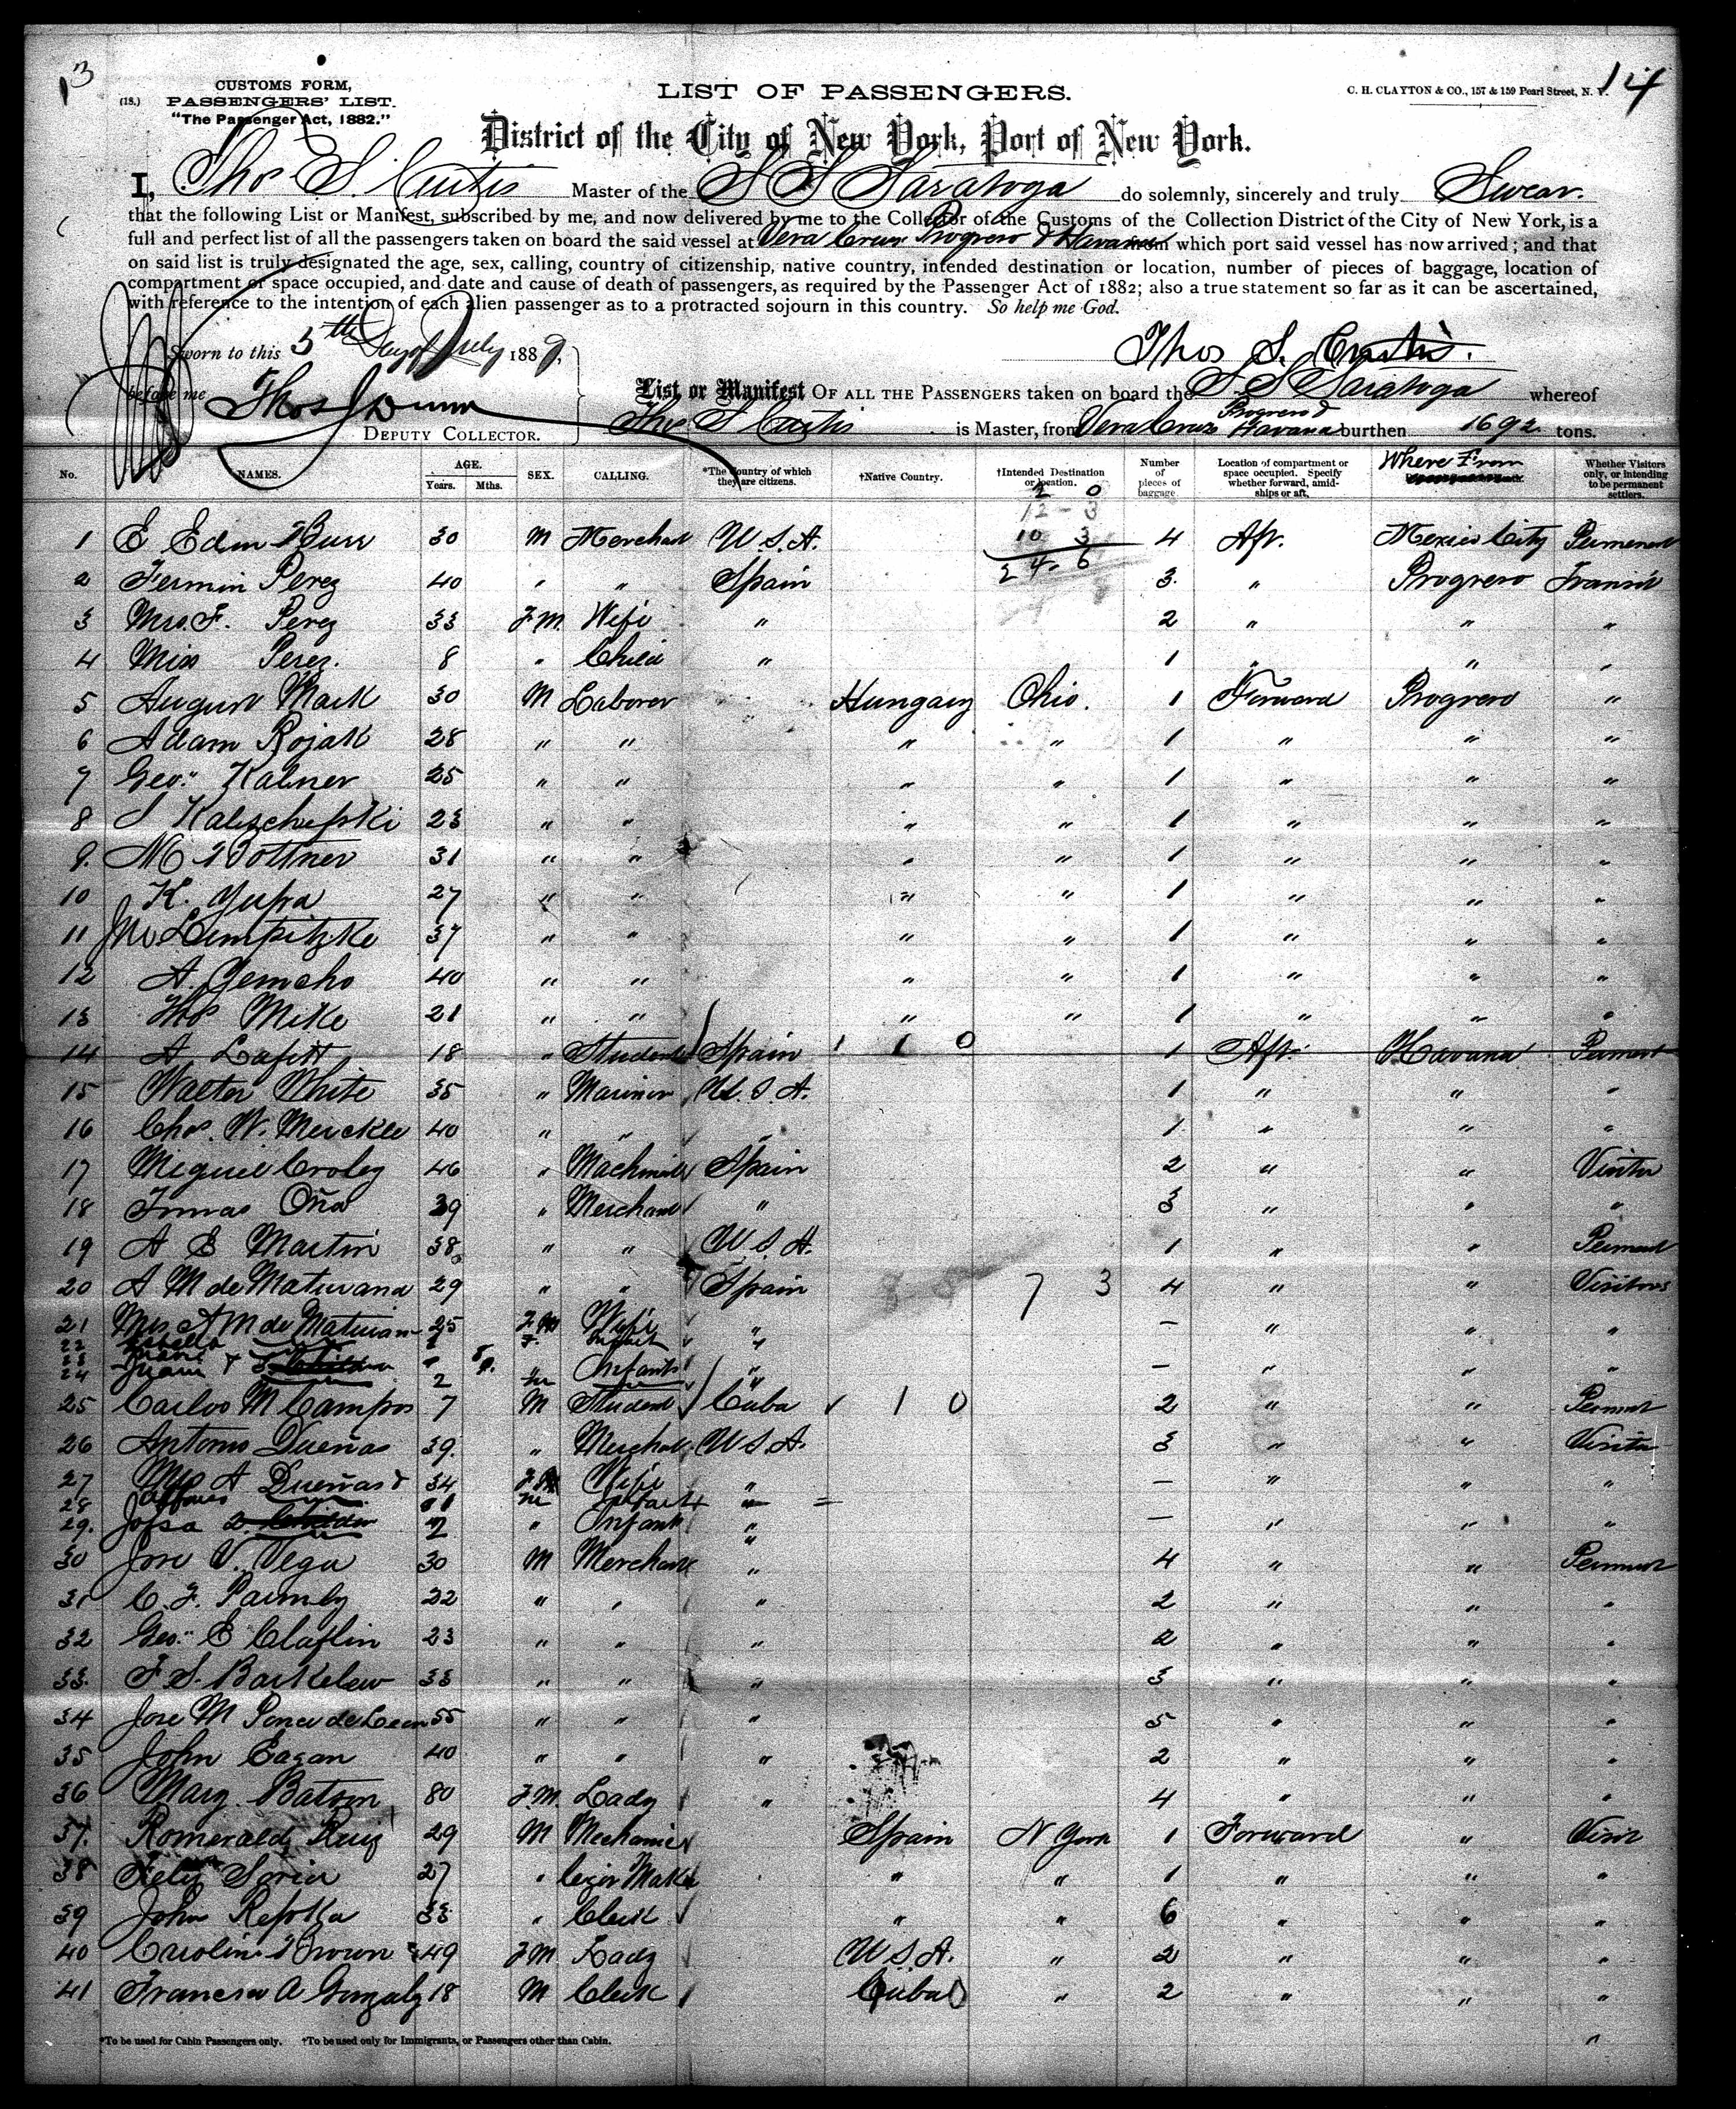 13
14
CUSTOMS FORM,
(18.) PASSENGERS' LIST.
"The Passenger Act, 1882."
LIST OF PASSENGERS.
C. H. CLAYTON & CO., 157 & 159 Pearl Street, N. Y.
District of the City of New York, Port of New York.
I, Thos S. Curtis Master of the S S Saratoga do solemnly, sincerely and truly Swear.
that the following List or Manifest, subscribed by me, and now delivered by me to the Collector of the Customs of the Collection District of the City of New York, is a
full and perfect list of all the passengers taken on board the said vessel at Vera Cruz Progreso & Havana from which port said vessel has now arrived; and that
on said list is truly designated the age, sex, calling, country of citizenship, native country, intended destination or location, number of pieces of baggage, location of
compartment or space occupied, and date and cause of death of passengers, as required by the Passenger Act of 1882; also a true statement so far as it can be ascertained,
with reference to the intention of each alien passenger as to a protracted sojourn in this country. So help me God.
Sworn to this 5th Day of July 1889,
Thos S. Curtis.
before me Thos J Dunn
DEPUTY COLLECTOR.
List or Manifest OF ALL THE PASSENGERS taken on board the S S Saratoga whereof
Thos S Curtis is Master, from Vera Cruz Progreso & Havana burthen 1692 tons.
No. NAMES. AGE. Years. Mths. SEX. CALLING. *The Country of which they are citizens. †Native Country. †Intended Destination or location. Number of pieces of baggage Location of compartment or space occupied. Specify whether forward, amidships or aft. Where From Whether Visitors only, or intending to be permanent settlers.
2 0
12 - 3
10 3
24 - 6
1 E Edm Burr 30 M Merchant U.S.A. 4 Aft. Mexico City Permenent
2 Fermin Perez 40 " " Spain 3 " Progreso Transit
3 Mrs. F. Perez 33 F.M. Wife " 2 " " "
4 Miss Perez. 8 " Child " 1 " " "
5 August Mark 30 M Laborer Hungary Ohio. 1 Forward Progreso "
6 Adam Rojak 28 " " " " 1 " " "
7 Geo. Kalner 25 " " " " 1 " " "
8 J Kalischefski 23 " " " " 1 " " "
9. M Bottner 31 " " " " 1 " " "
10 K. Yupa 27 " " " " 1 " " "
11 Jno Limpitzke 37 " " " " 1 " " "
12 A. Gemcho 40 " " " " 1 " " "
13 Thos Mike 21 " " " " 1 " " "
14 A Lafitt 18 " Student Spain 1 1 0 1 Aft. Havana Perment
15 Walter White 35 " Mariner U.S.A. 1 " " "
16 Chas. W. Merckle 40 " " " 1 " " "
17 Miguel Croley 46 " Machinist Spain 2 " " Visitor
18 Tomas Oña 39 " Merchant " 3 " " "
19 A E Martin 38 " " U.S.A. 1 " " Perment
20 A M de Maturana 29 " " Spain 7 3 4 " " Visitors
21 Mrs A M de Maturan 25 F.M Wife " - " " "
22 F. Infant "
23
24 Juan & 2 m Infants " - " " "
25 Carlos M Campos 7 M Student Cuba 1 0 2 " " Perment
26 Antonio Dueñas 39. " Merchant U S A 3 " " Visitor
27 Mrs A Dueñas & 34 F.M Wife " - " " "
28 m Infant "
29. Josfa 2 " Infant " - " " "
30 Jose V. Vega 30 M Merchant " 4 " " Perment
31 C. F. Parmly 22 " " " 2 " " "
32 Geo. E Claflin 23 " " " 2 " " "
33. F S. Barkelew 33 " " " 3 " " "
34 Jose M Ponce de Leon 55 " " " 5 " " "
35 John Eagan 40 " " " 2 " " "
36 Mary Batson 80 F.M. Lady " 4 " " "
37. Romerald Ruiz 29 M Mechanic Spain N York 1 Forward " Visit
38 Felix Soria 27 " Cigar Maker " " 1 " " "
39 John Refotka 33 " Clerk " " 6 " " "
40 Caroline Brown 49 F.M Lady U.S.A. " 2 " " "
41 Francisco A Gonzalez 18 M Clerk Cuba " 2 " " "
*To be used for Cabin Passengers only. †To be used only for Immigrants, or Passengers other than Cabin.